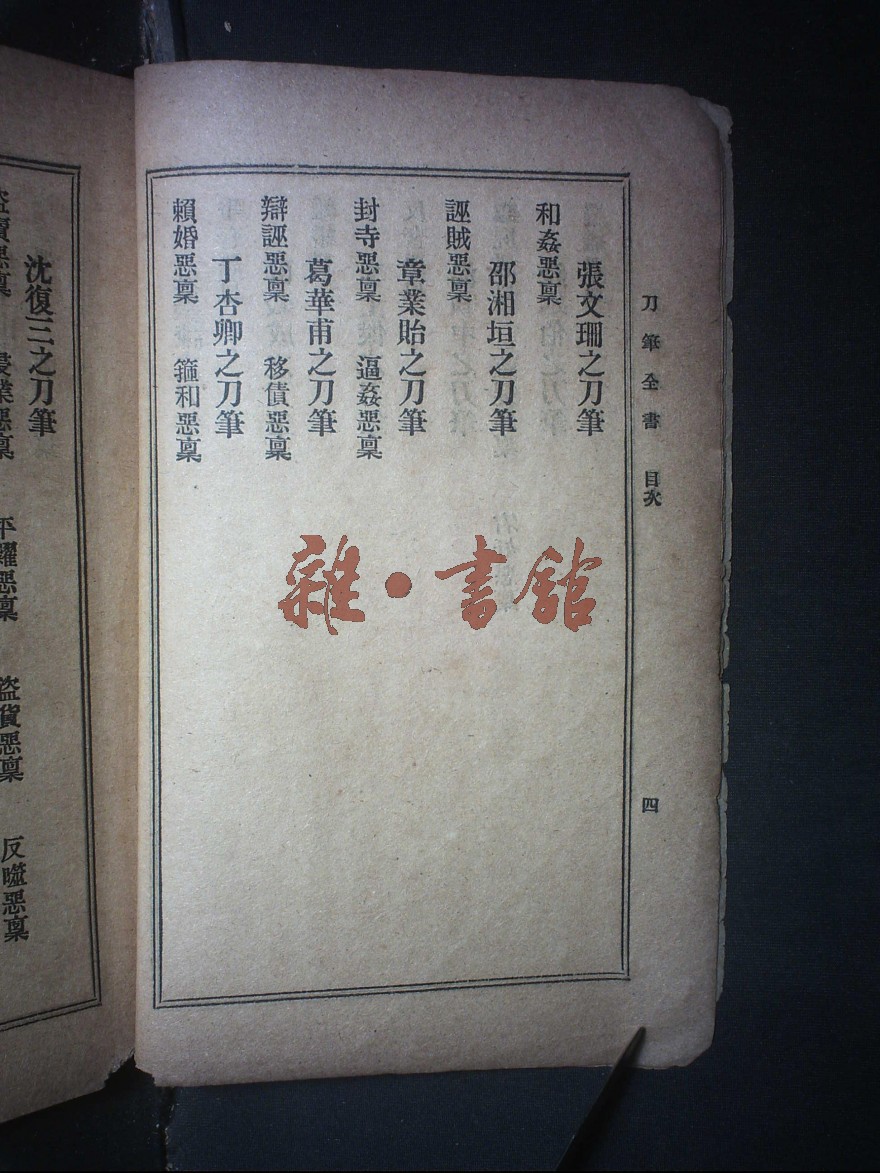 刀筆全書 目次
四
張文珊之刀筆
和姦惡稟
邵湘垣之刀筆
誣賊惡稟
章業貽之刀筆
封寺惡稟 逼姦惡稟
葛華甫之刀筆
辯誣惡稟 移債惡稟
丁杏卿之刀筆
賴婚惡稟 箍和惡稟
雜·書館
沈復三之刀筆
惡稟 惡稟 平糶惡稟 盜貨惡稟 反噬惡稟